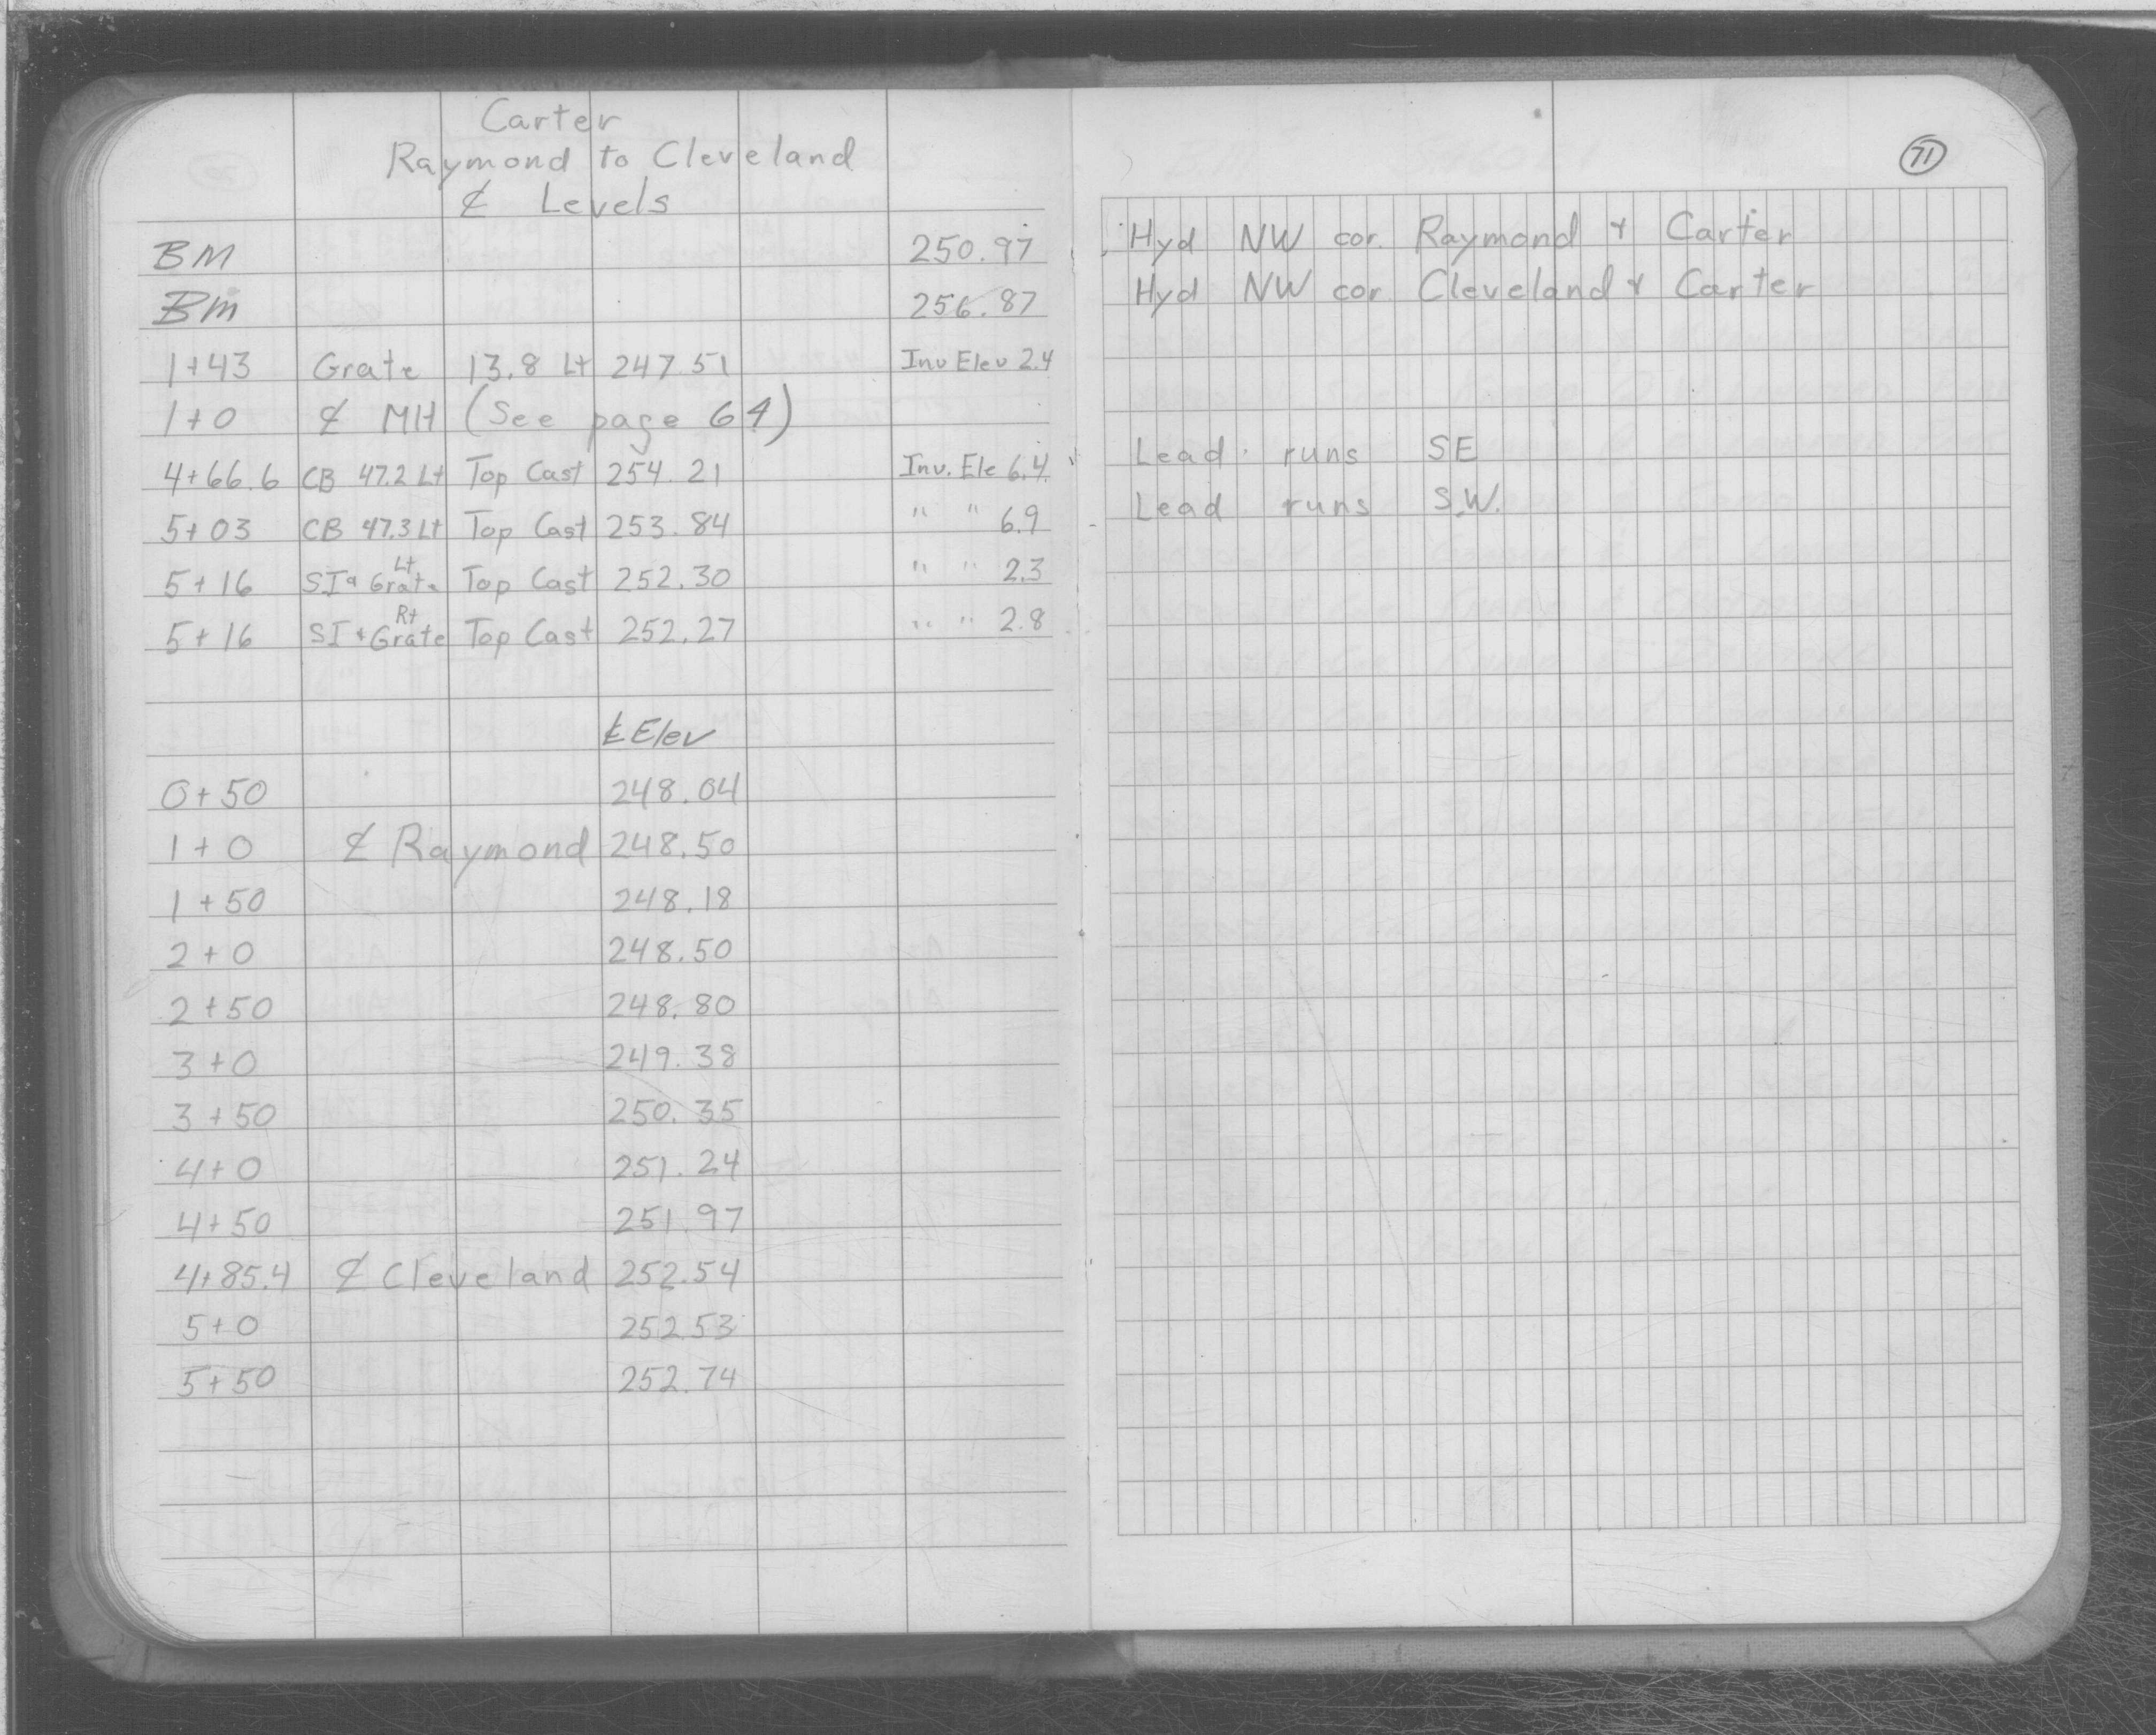 Carter
Raymond to Cleveland
℄ Levels
BM 250.97
BM 256.87
1+43 Grate 13.8 Lt 247.51 Inv Elev 2.4
1+0 ℄ MH (See page 64)
4+66.6 CB 47.2 Lt Top Cast 254.21 Inv. Ele 6.4
5+03 CB 47.3 Lt Top Cast 253.84 " " 6.9
5+16 SI & Grate Lt Top Cast 252.30 " " 2.3
5+16 SI & Grate Rt Top Cast 252.27 " " 2.8
℄ Elev
0+50 248.04
1+0 ℄ Raymond 248.50
1+50 248.18
2+0 248.50
2+50 248.80
3+0 249.38
3+50 250.35
4+0 251.24
4+50 251.97
4+85.4 ℄ Cleveland 252.54
5+0 252.53
5+50 252.74
71
Hyd NW cor. Raymond & Carter
Hyd NW cor Cleveland & Carter
Lead runs SE
Lead runs S.W.